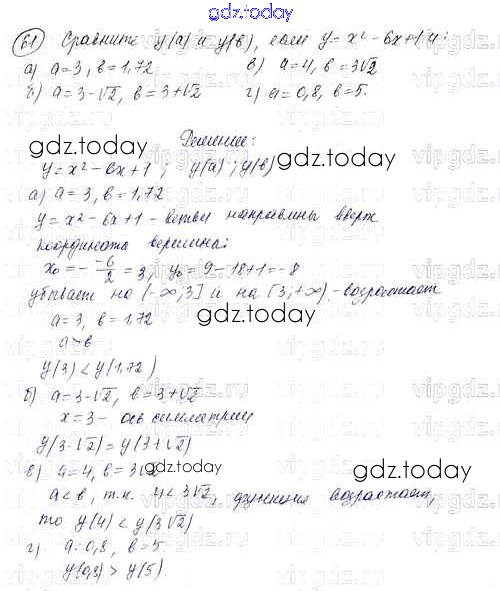 gdz.today
61 Сравните y(a) и y(b), если y = x² - 6x + 1
а) a = 3, b = 1,72 в) a = 4, b = 3√2
б) a = 3-√2, b = 3+√2 г) a = 0,8, b = 5.
Решение:
y = x² - 6x + 1; y(a); y(b)
а) a = 3, b = 1,72
y = x² - 6x + 1 - ветви направлины вверх
координата вершины:
x₀ = - -6/2 = 3, y₀ = 9 - 18 + 1 = -8
убывает на (-∞; 3] и на [3; +∞) - возрастает
a = 3, b = 1,72
a > b
y(3) < y(1,72)
б) a = 3-√2, b = 3+√2
x = 3 - ось симметрии
y(3-√2) = y(3+√2)
в) a = 4, b = 3√2
a < b, т.к. 4 < 3√2, функция возрастает,
то y(4) < y(3√2)
г) a = 0,8, b = 5.
y(0,8) > y(5).
gdz.today
gdz.today
gdz.today
gdz.today
gdz.today
gdz.today
gdz.today
gdz.today